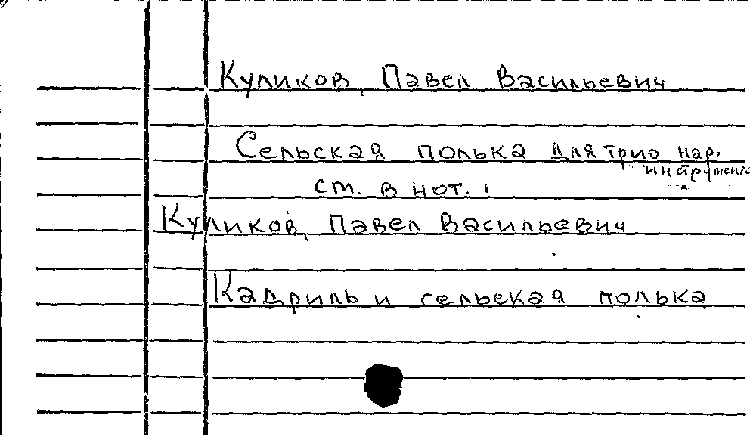 Куликов, Павел Васильевич
Сельская полька для трио нар.
инструменто
см. в нот.
Куликов, Павел Васильевич
Кадриль и сельская полька